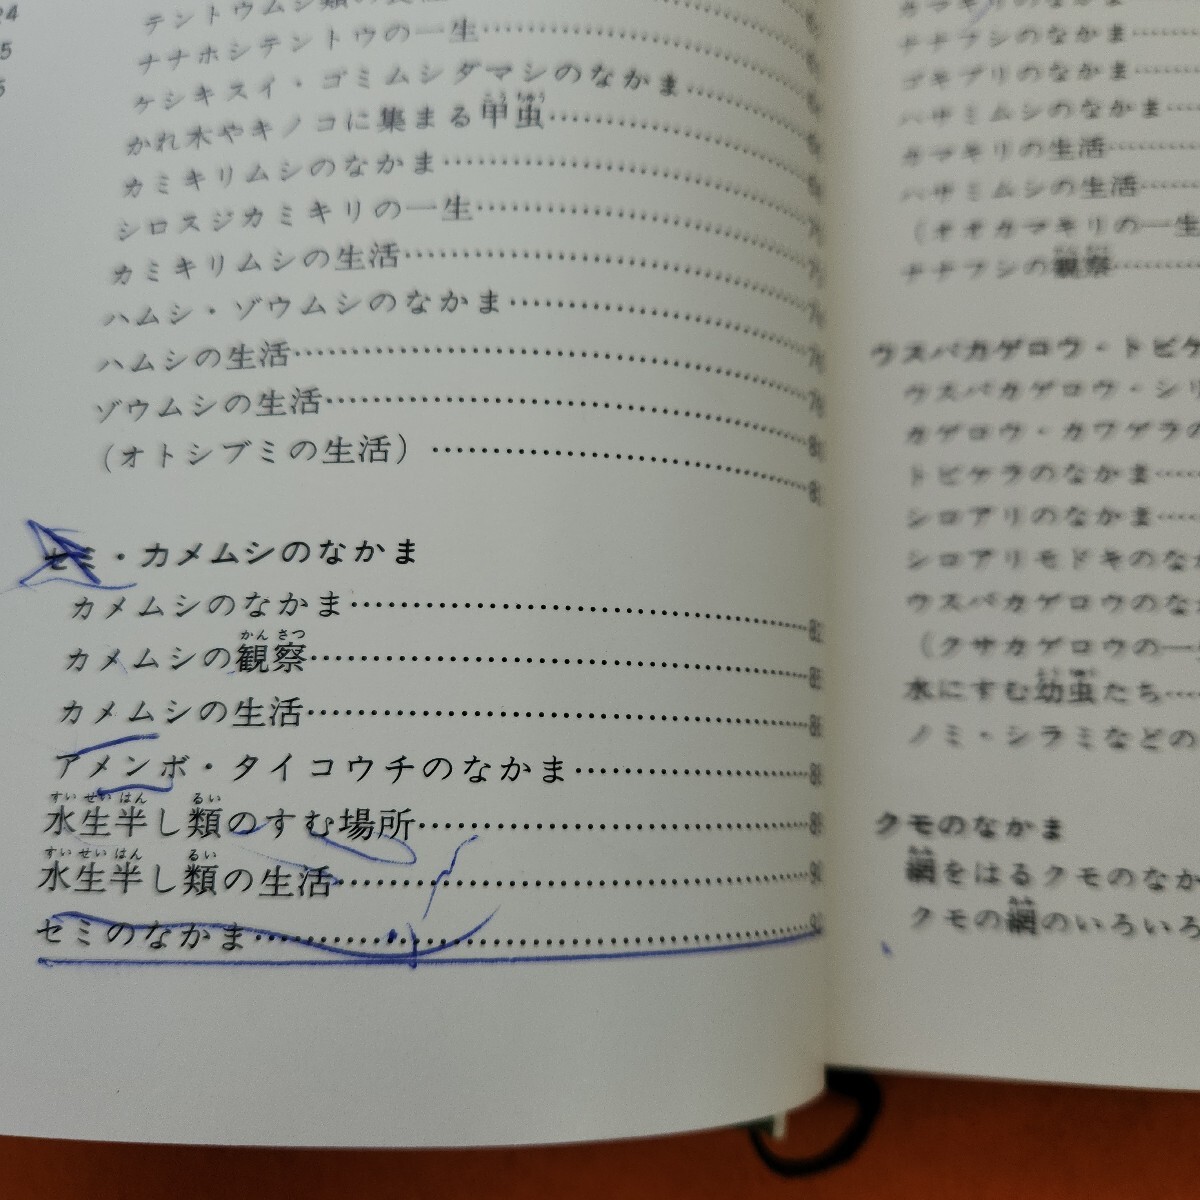 24
5
5
テントウムシ類の
ナナホシテントウの一生
ケシキスイ・ゴミムシダマシのなかま
かれ木やキノコに集まる甲虫
カミキリムシのなかま
シロスジカミキリの一生
カミキリムシの生活
ハムシ・ゾウムシのなかま
ハムシの生活
ゾウムシの生活
(オトシブミの生活)
セミ・カメムシのなかま
カメムシのなかま
カメムシの観察
カメムシの生活
アメンボ・タイコウチのなかま
水生半し類のすむ場所
水生半し類の生活
セミのなかま
カマキリのなかま
ナナフシのなかま
ゴキブリのなかま
ハサミムシのなかま
カマキリの生活
ハサミムシの生活
(オオカマキリの一生
ナナフシの観察
ウスバカゲロウ・トビケ
ウスバカゲロウ・シリ
カゲロウ・カワゲラの
トビケラのなかま
シロアリのなかま
シロアリモドキのなか
ウスバカゲロウのなか
(クサカゲロウの一生
水にすむ幼虫たち
ノミ・シラミなどの
クモのなかま
網をはるクモのなか
クモの網のいろいろ